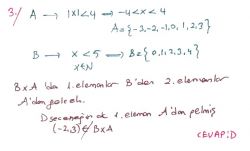 3-) A → |x|<4 → -4<x<4
A={-3,-2,-1,0,1,2,3}
B → x<5 → B={0,1,2,3,4}
x∈N
BxA 'da 1.elemanlar B'den 2.elemanlar
A'dan gelecek.
D seçeneğinde 1.eleman A'dan gelmiş
(-2,3)∉BxA
CEVAP:D